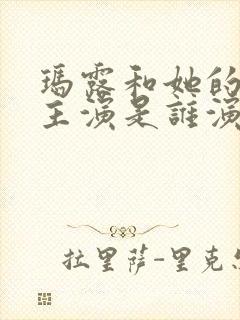 瑪露和她的
主演是誰演
拉里薩-里克